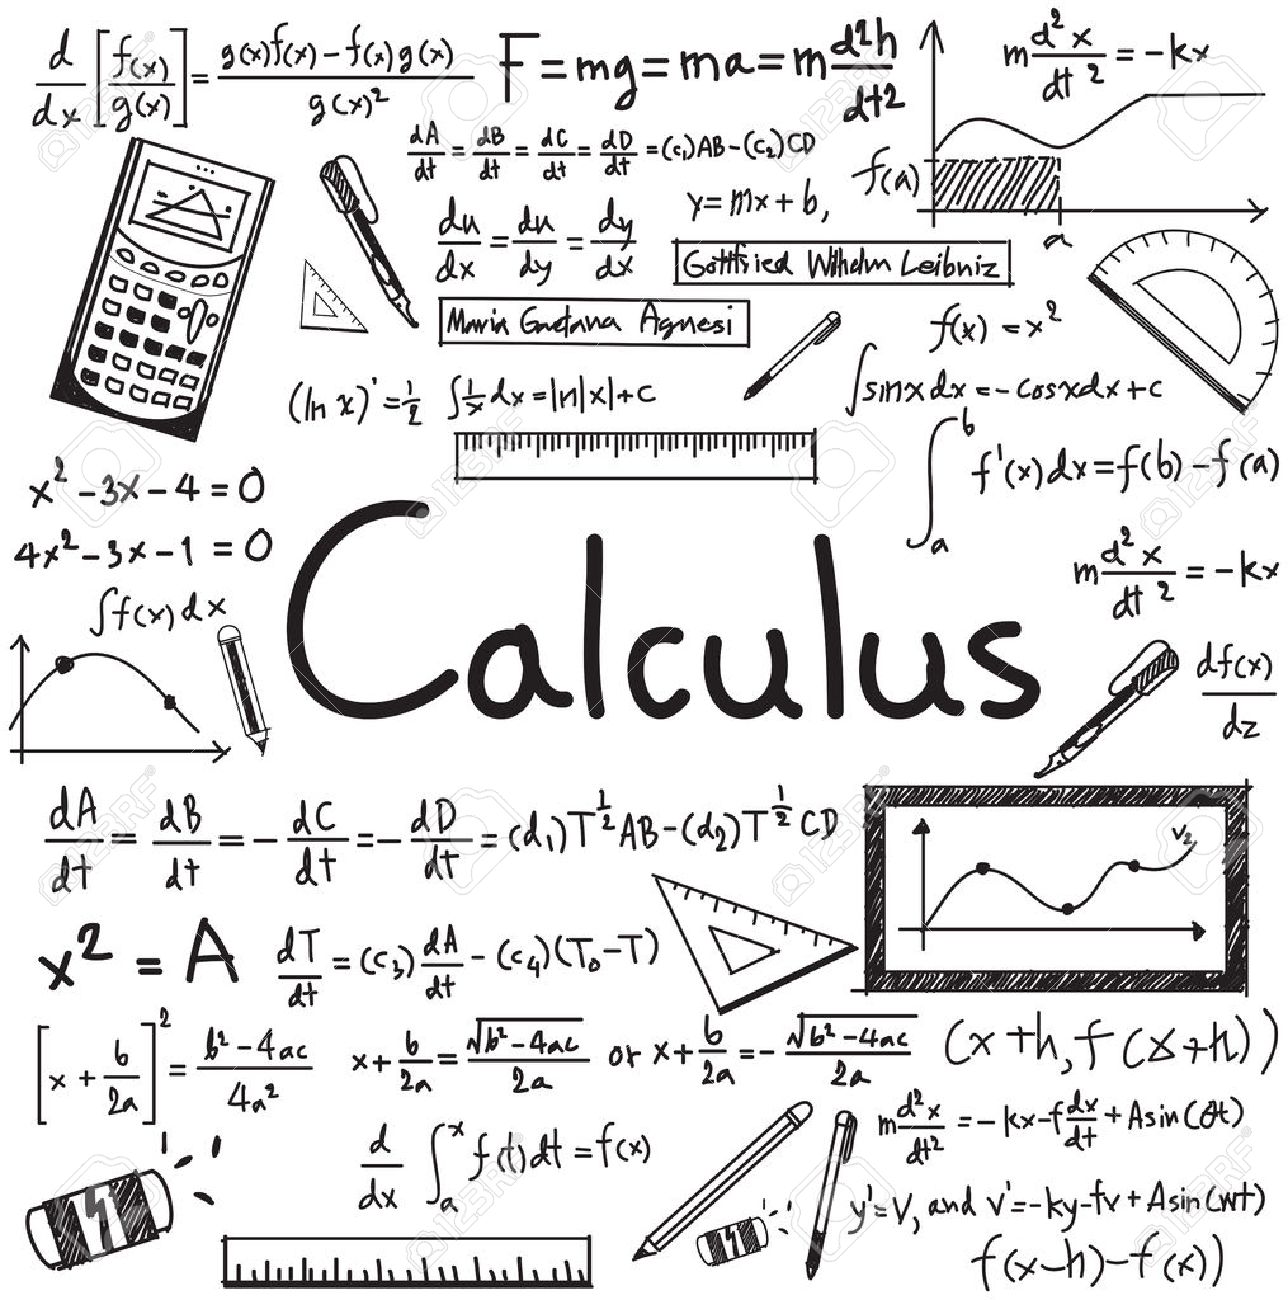 d/dx [f(x)/g(x)] = g(x)f(x) – f(x)g(x) / g(x)²
F = mg = ma = m d²h/dt2
m d²x/dt 2 = -kx
dA/dt = dB/dt = dC/dt = dD/dt = (c₁)AB - (c₂)CD
f(a)
a
y = mx + b,
du/dx = du/dy = dy/dx
Gottfried Wilhelm Leibniz
Maria Gaetana Agnesi
f(x) = x²
(ln x)' = 1/2
∫ 1/x dx = ln|x| + c
∫ sinx dx = - cosxdx + c
∫ₐᵇ f'(x)dx = f(b) - f(a)
x² - 3x - 4 = 0
4x² - 3x - 1 = 0
Calculus
m d²x/dt 2 = -kx
∫f(x)dx
df(x)/dz
dA/dt = dB/dt = - dC/dt = - dD/dt = (d₁)T^½ AB - (d₂)T^½ CD
V₂
x² = A
dT/dt = (c₃) dA/dt - (c₄)(T₀ - T)
[x + b/2a]² = b² - 4ac / 4a²
x + b/2a = √b² - 4ac / 2a or x + b/2a = - √b² - 4ac / 2a
(x+h, f(x+h))
m d²x/dt² = - kx - f dx/dt + Asin(
d/dx ∫ₐˣ f(t)dt = f(x)
y' = v, and v' = -ky - fv + Asin(wt)
f(x-h) - f(x))